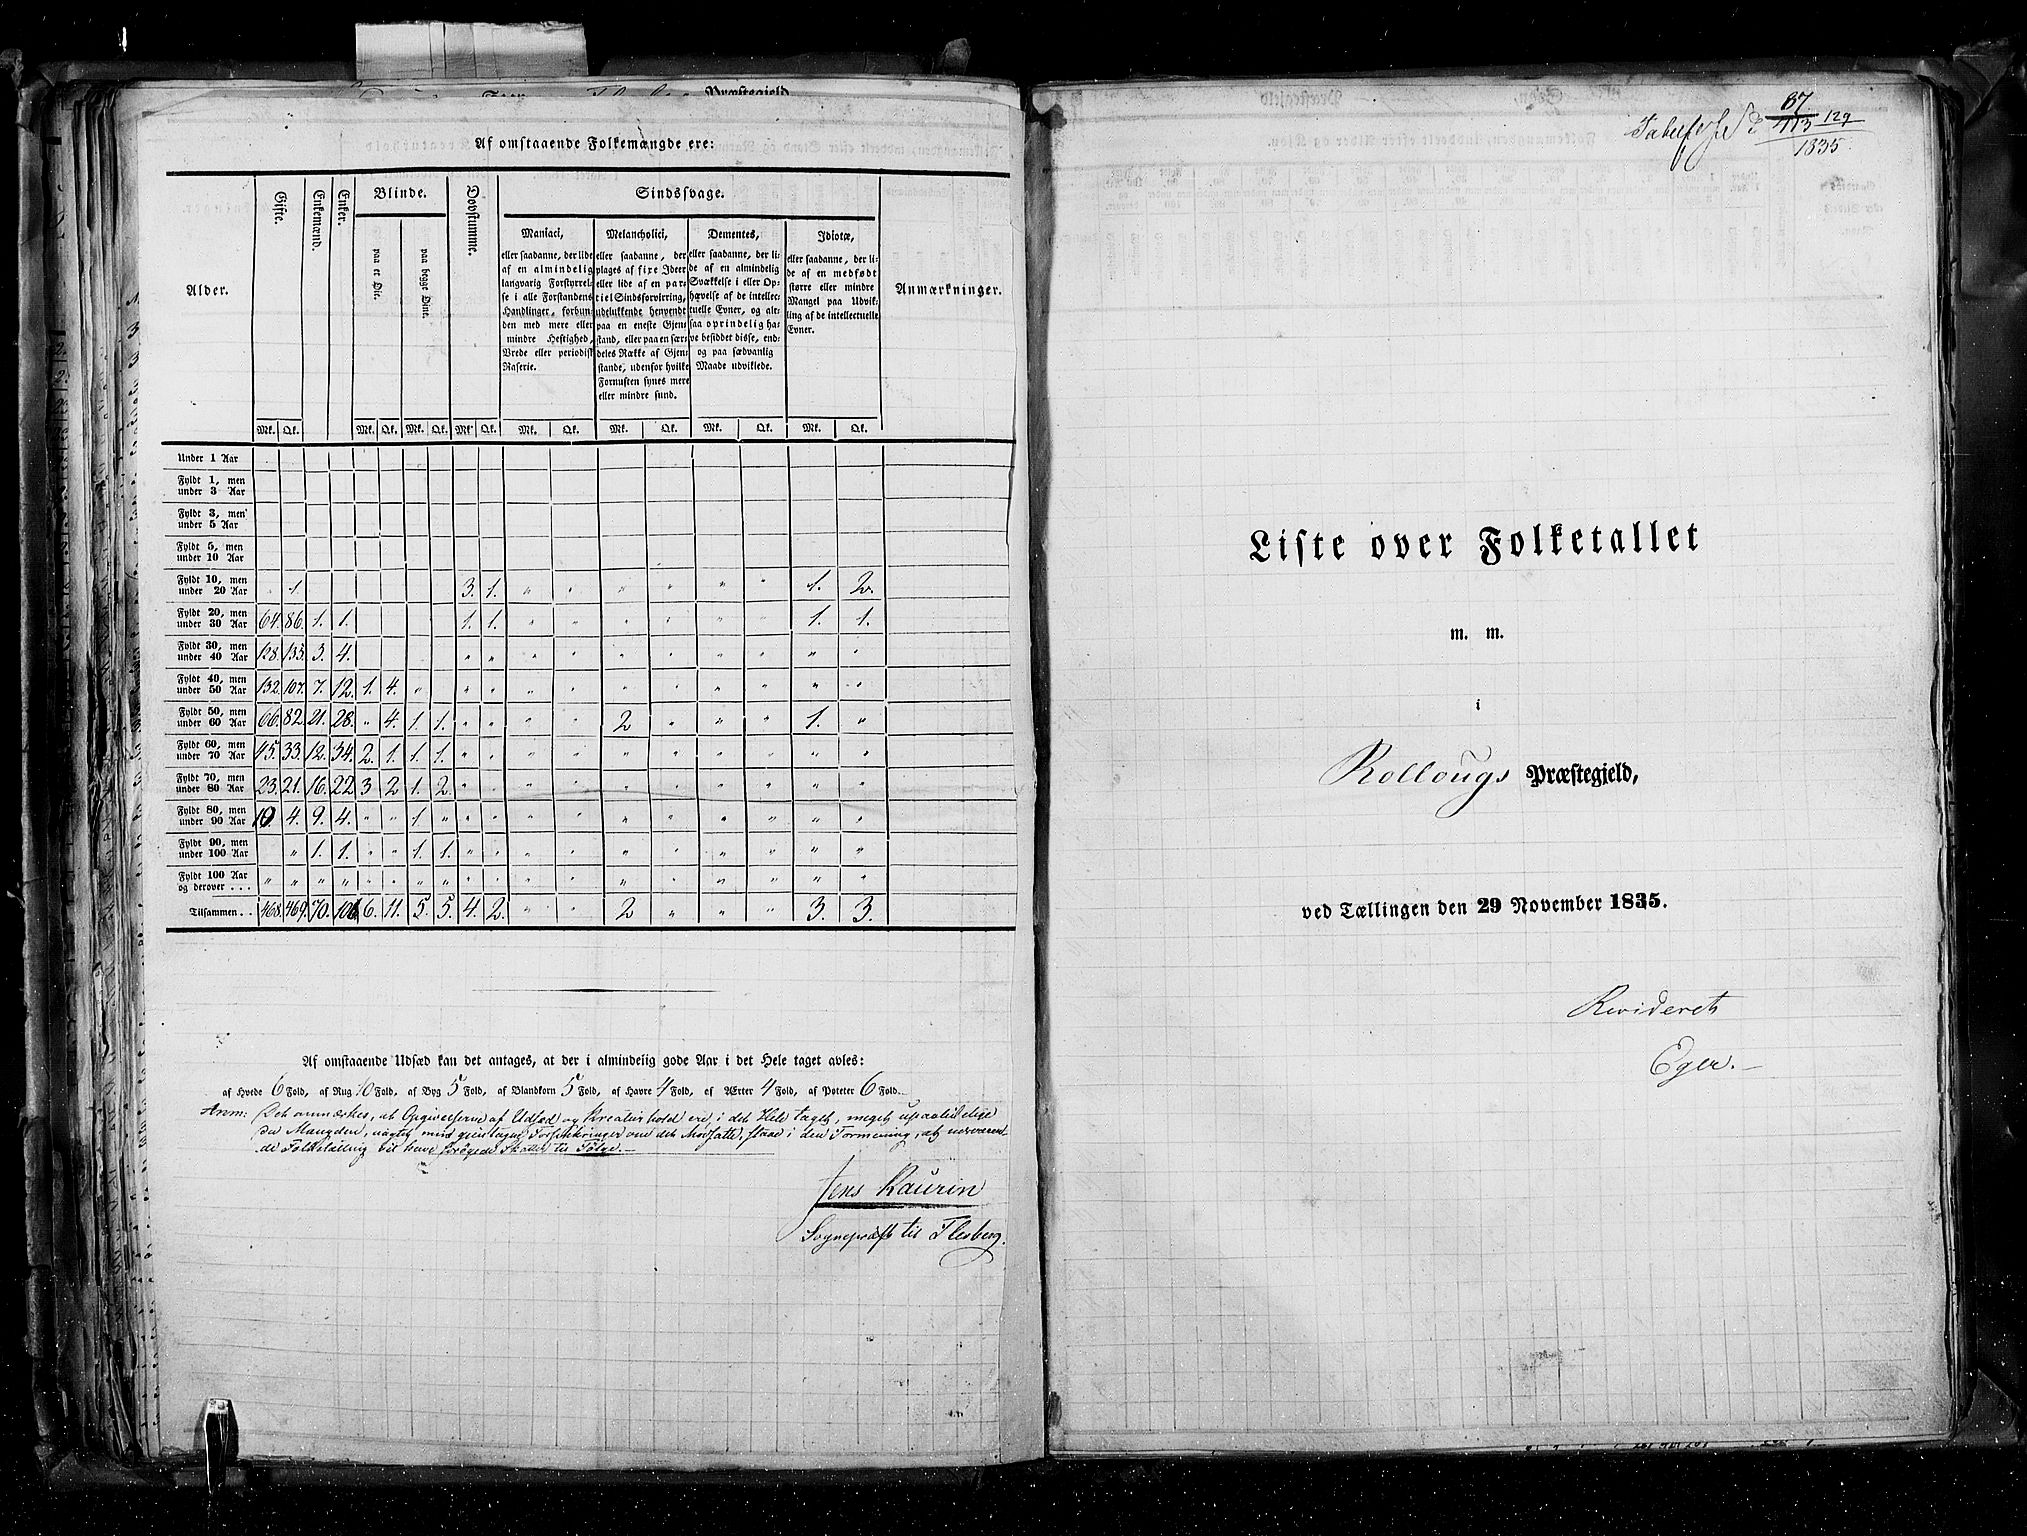 Præstegjeld
Af omstaaende Folkemængde ere:
Alder. Gifte. Enkemænd. Enker. Blinde. Døvstumme. Sindssvage. Anmærkninger.
paa et Øie. paa begge Øine.
Maniaci, eller saadanne, der lide af en almindelig langvarig Forstyrrelse i alle Forstandens Handlinger, forbunden med mere eller mindre Heftighed, Vrede eller periodisk Raserie.
Melancholici, eller saadanne, der plages af fixe Ideer eller lide af en partiel Sindsforvirring, udelukkende henvendt paa en eneste Gjenstand, eller paa en særdeles Række af Gjenstande, udenfor hvilke Fornuften synes mere eller mindre sund.
Dementes, eller saadanne, der lide af en almindelig Svækkelse i eller Ophævelse af de intellectuelle Evner, og altsaa oprindelig have besiddet disse, endog paa sædvanlig Maade udviklede.
Idiotæ, eller saadanne, der lide af en medfødt større eller mindre Mangel paa Udvikling af de intellectuelle Evner.
Mk. Qk. Mk. Qk. Mk. Qk. Mk. Qk. Mk. Qk. Mk. Qk. Mk. Qk. Mk. Qk.
Under 1 Aar
Fyldt 1, men under 3 Aar
Fyldt 3, men under 5 Aar
Fyldt 5, men under 10 Aar
Fyldt 10, men under 20 Aar " 1. 3. 1. " " " " " " 1. 2.
Fyldt 20, men under 30 Aar 64. 86. 1. 1. 1. 1. " " " " " " 1. 1.
Fyldt 30, men under 40 Aar 128. 133. 3. 4. " " " " " " " " " "
Fyldt 40, men under 50 Aar 132. 107. 7. 12. 1. 4. " " " " " " " " " " "
Fyldt 50, men under 60 Aar 66. 82. 21. 28. " 4. 1. 1. " " " " 2 " " " 1. "
Fyldt 60, men under 70 Aar 45. 33. 12. 34. 2. 1. 1. 1. " " " " " " " " " "
Fyldt 70, men under 80 Aar 23. 21. 16. 22 3 2 1. 2. " " " " " " " " " "
Fyldt 80, men under 90 Aar 10. 4. 9. 4. " " 1. " " " " " " " " " " "
Fyldt 90, men under 100 Aar " 1. 1. " " 1. 1. " " " " " " " " " "
Fyldt 100 Aar og derover . . . " " " " " " " " " " " " " " " " " "
Tilsammen . . 468. 469. 70. 106. 6. 11. 5. 5. 4. 2. " " 2 " " " 3. 3.
Af omstaaende Udsæd kan det antages, at der i almindelig gode Aar i det Hele taget avles:
af Hvede 6 Fold, af Rug 10 Fold, af Byg 5 Fold, af Blandkorn 5 Fold, af Havre 4 Fold, af Ærter 4 Fold, af Poteter 6 Fold.
Anm: Det anmærkes, at Opgivelserne af Udsæd og Kreaturhold ere, i det Hele taget, meget upaalidelige
da Mængden, uagtet mine gjentagne Forsikkringer om det Modsatte, staae i den Formening, at nærværen-
de Folketælling vil have forøgede Skatter til Følge.
Jens Raurin
Sognepræst til Flesberg.
87
413 129
1835
Liste over Folketallet
m. m.
i
Rollougs Præstegjeld,
ved Tællingen den 29 November 1835.
Revideret
Eger.